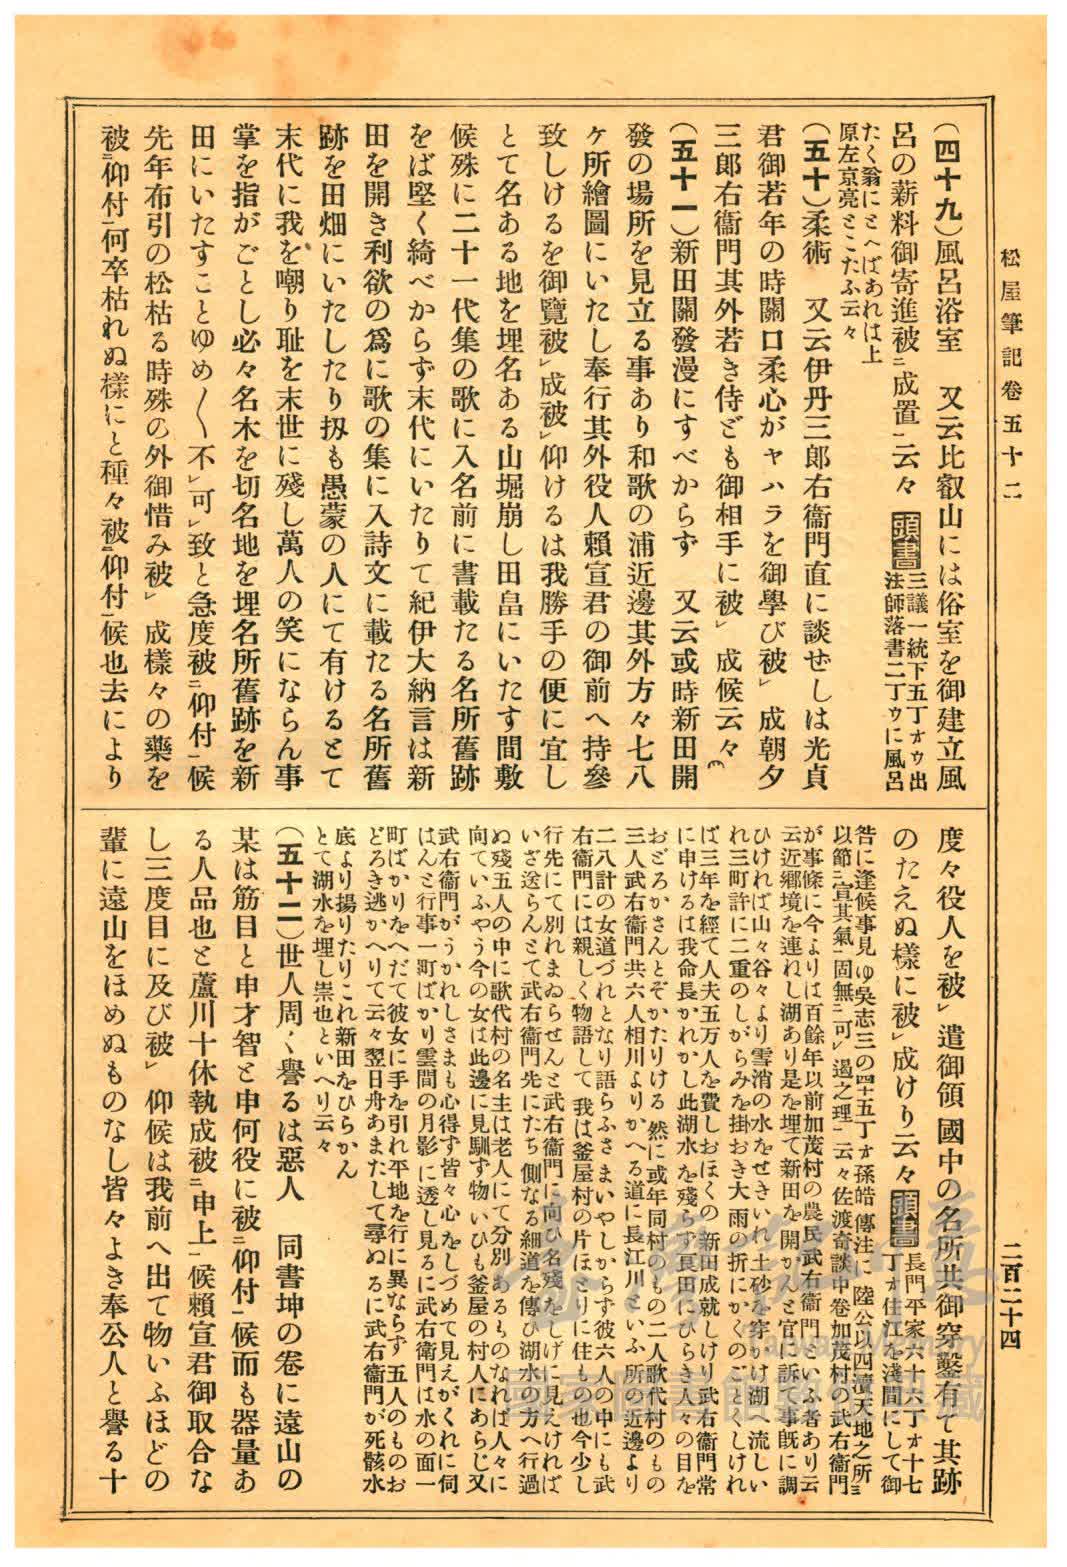 松屋筆記卷五十二
二百二十四
(四十九)風呂浴室 又云比叡山には俗室を御建立風
呂の薪料御寄進被㆓成置㆒云々 頭書 三議一統下五丁オウ出
法師落書二丁ウに風呂
たく翁にとへばあれは上
原左京亮とこたふ云々
(五十)柔術 又云伊丹三郎右衞門直に談ぜしは光貞
君御若年の時關口柔心がヤハラを御學び被㆑成朝夕
三郎右衞門其外若き侍ども御相手に被㆑成候云々
(五十一)新田關發漫にすべからず 又云或時新田開
發の場所を見立る事あり和歌の浦近邊其外方々七八
ケ所繪圖にいたし奉行其外役人賴宣君の御前へ持參
致しけるを御覽被㆑成被㆑仰けるは我勝手の便に宜し
とて名ある地を埋名ある山堀崩し田畠にいたす間敷
候殊に二十一代集の歌に入名前に書載たる名所舊跡
をば堅く綺べからず末代にいたりて紀伊大納言は新
田を開き利欲の爲に歌の集に入詩文に載たる名所舊
跡を田畑にいたしたり扨も愚蒙の人にて有けるとて
末代に我を嘲り耻を末世に殘し萬人の笑にならん事
掌を指がごとし必々名木を切名地を埋名所舊跡を新
田にいたすことゆめ〱不㆑可㆑致と急度被㆓仰付㆒候
先年布引の松枯る時殊の外御惜み被㆑成樣々の藥を
被㆓仰付㆒何卒枯れぬ樣にと種々被㆓仰付㆒候也去により
度々役人を被㆑遣御領國中の名所共御穿鑿有て其跡
のたえぬ樣に被㆑成けり云々 頭書 長門平家六十六丁オ十七
丁オ住江を淺間にして御
咎に逢候事見ゆ吳志三の四十五丁オ孫皓傳注に陸公以四瀆天地之所㆓
以節㆓宣其氣㆒固無㆓可㆑過之理㆒云々佐渡奇談中卷加茂村の武右衞門
が事條に今よりは百餘年以前加茂村の農民武右衞門といふ者あり云
云近鄕境を連ねし湖あり是を埋て新田を開かんと官に訴て事既に調
ひければ山々谷々より雪消の水をせきいれ土砂を穿かけ湖へ流しい
れ三町許に二重のしがらみを掛おき大雨の折にかくのごとくしけれ
ば三年を經て人夫五万人を費しおほくの新田成就しけり武右衞門常
に申けるは我命長かれかし此湖水を殘らず良田にひらき人々の目を
おどろかさんとぞかたりける然に或年同村のもの二人歌代村のもの
三人武右衞門共六人相川よりかへる道に長江川といふ所の近邊より
二八計の女道づれとなり語らふさまいやしからず彼六人の中にも武
右衞門には親しく物語して我は釜屋村の片ほとりに住もの也今少し
行先にて別れまゐらせんと武右衞門に向ひ名殘をしげに見えければ
いざ送らんとて武右衞門先にたち側なる細道を傳ひ湖水の方へ行過
ぬ殘五人の中に歌代村の名主は老人にて分別あるものなれば人々に
向ていふやう今の女は此邊に見馴ず物いひも釜屋の村人にあらじ又
武右衞門がうかれしさまも心得ず皆々心をしづめて見えがくれに伺
はんと行事一町ばかり雲間の月影に透し見るに武右衞門は水の面一
町ばかりをへだて彼女に手を引れ平地を行に異ならず五人のものお
どろき逃かへりて云々翌日舟あまたして尋ぬるに武右衞門が死骸水
底より揚りたりこれ新田をひらかん
とて湖水を埋し祟也といへり云々
(五十二)世人周く譽るは惡人 同書坤の卷に遠山の
某は筋目と申才智と申何役に被㆓仰付㆒候而も器量あ
る人品也と蘆川十休執成被㆓申上㆒候賴宣君御取合な
し三度目に及び被㆑仰候は我前へ出て物いふほどの
輩に遠山をほめぬものなし皆々よき奉公人と譽る十
臺灣記憶
Taiwan Memory
國家圖書館數位典藏